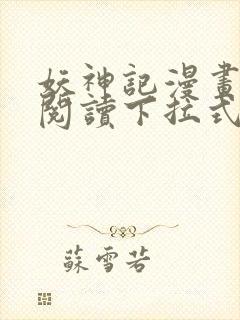 妖神記漫畫
閱讀下拉式
蘇雪若